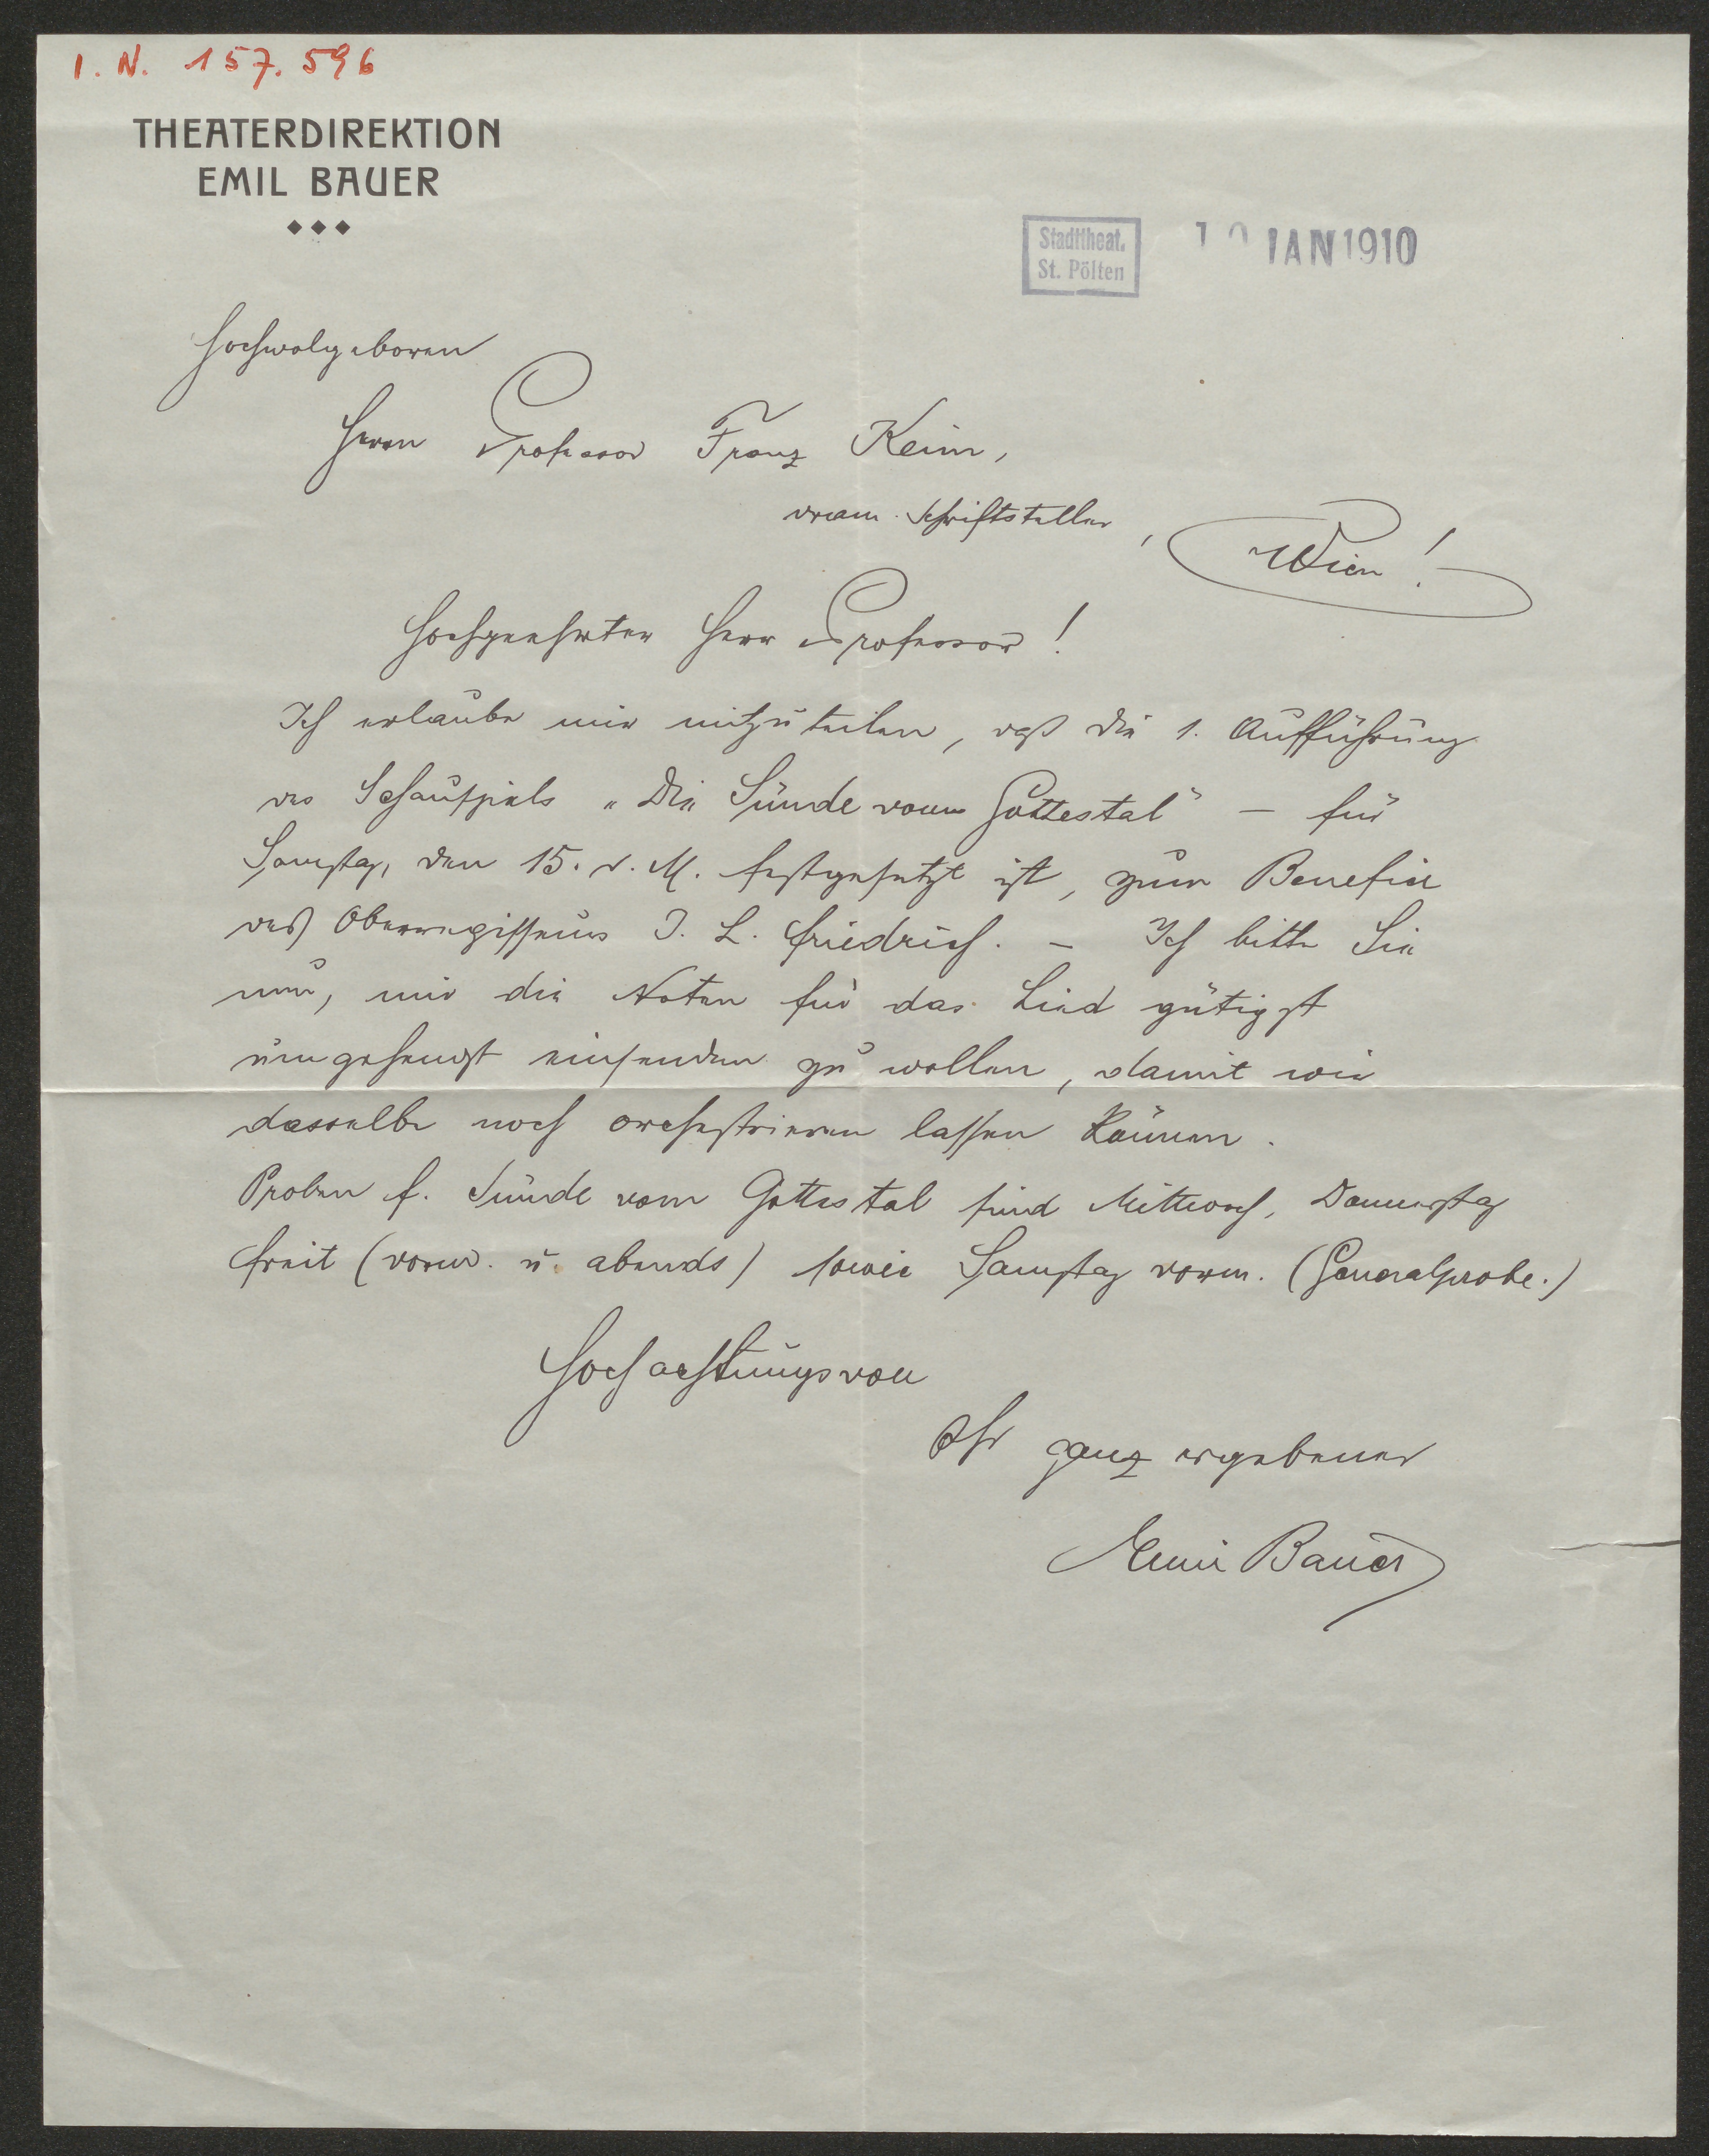 I. N. 157.596
THEATERDIREKTION
EMIL BAUER
Stadttheat.
St. Pölten
10 JAN 1910
Hochwolgeboren
Herrn Professor Franz Keim,
dram. Schriftsteller,
Wien!
Hochgeehrter Herr Professor!
Ich erlaube mir mitzuteilen, daß die 1. Aufführung
des Schauspiels „Die Sünde vom Gottestal" – für
Samstag, den 15. d. M. festgesetzt ist, zum Benefice
des Oberregisseurs J. L. Friedrich. – Ich bitte Sie
nun, mir die Noten für das Lied gütigst
umgehendst einsenden zu wollen, damit wir
dasselbe noch orchestrieren lassen können.
Proben f. Sünde vom Gottestal sind Mittwoch, Donnerstag
Freit (vorm. u. abends) sowie Samstag vorm. (Generalprobe.)
Hochachtungsvoll
Ihr ganz ergebener
Emil Bauer